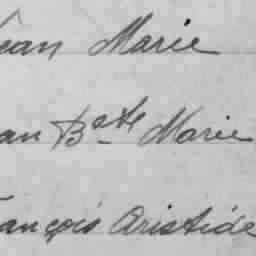 Jean Marie
ean Bte Marie
François Aristide